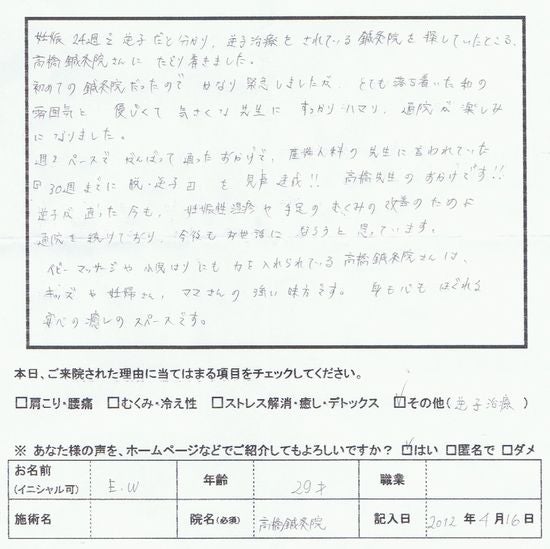 妊娠24週で逆子だと分かり、逆子治療をされている鍼灸院を探していたところ、
高橋鍼灸院さんにたどり着きました。
初めての鍼灸院だったのでかなり緊張しましたが、とても落ち着いた和の
雰囲気と優しくて気さくな先生にすっかりハマり、通院が楽しみ
になりました。
週2ペースでがんばって通ったおかげで、産婦人科の先生に言われていた
『30週までに脱・逆子』を見事達成!! 高橋先生のおかげです!!
逆子が直った今も、妊娠性湿疹や手足のむくみの改善のため
通院を続けており、今後もお世話になろうと思っています。
ベビーマッサージや小児はりにも力を入れられている高橋鍼灸院さんは、
キッズや妊婦さん、ママさんの強い味方です。身も心もほぐれる
安心の癒しのスペースです。
本日、ご来院された理由に当てはまる項目をチェックしてください。
□肩こり・腰痛 □むくみ・冷え性 □ストレス解消・癒し・デトックス ☑その他(逆子治療)
※ あなた様の声を、ホームページなどでご紹介してもよろしいですか? ☑はい □匿名で □ダメ
お名前(イニシャル可) E.W 年齢 29才 職業
施術名 院名(必須) 高橋鍼灸院 記入日 2012年4月16日